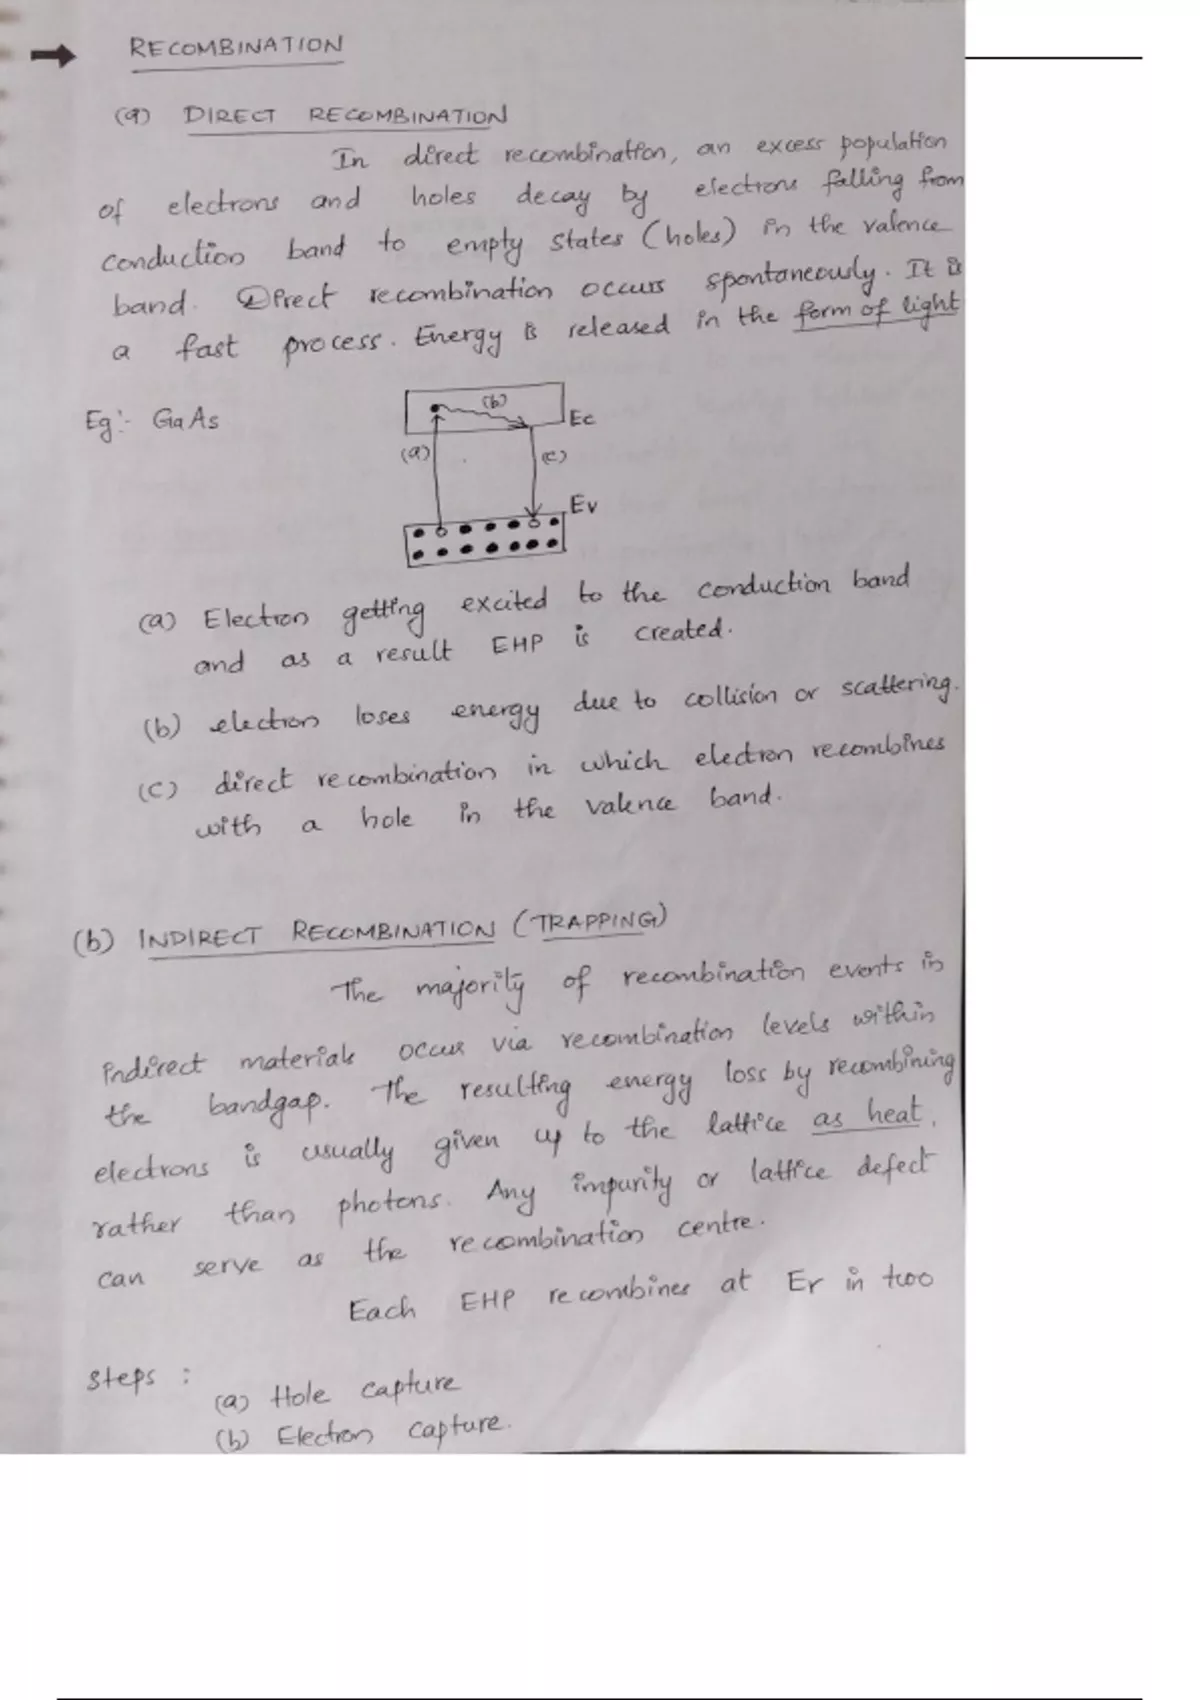 RECOMBINATION
(a) DIRECT RECOMBINATION
In direct recombination, an excess population
of electrons and holes decay by electrons falling from
conduction band to empty states (holes) in the valence
band. Direct recombination occurs spontaneously. It is
a fast process. Energy is released in the form of light
Eg:- GaAs
(b)
Ec
(a)
(c)
Ev
(a) Electron getting excited to the conduction band
and as a result EHP is created.
(b) electron loses energy due to collision or scattering.
(c) direct recombination in which electron recombines
with a hole in the valence band.
(b) INDIRECT RECOMBINATION (TRAPPING)
The majority of recombination events in
indirect materials occur via recombination levels within
the bandgap. The resulting energy loss by recombining
electrons is usually given up to the lattice as heat,
rather than photons. Any impurity or lattice defect
can serve as the recombination centre.
Each EHP recombines at Er in two
steps :
(a) Hole capture
(b) Electron capture.